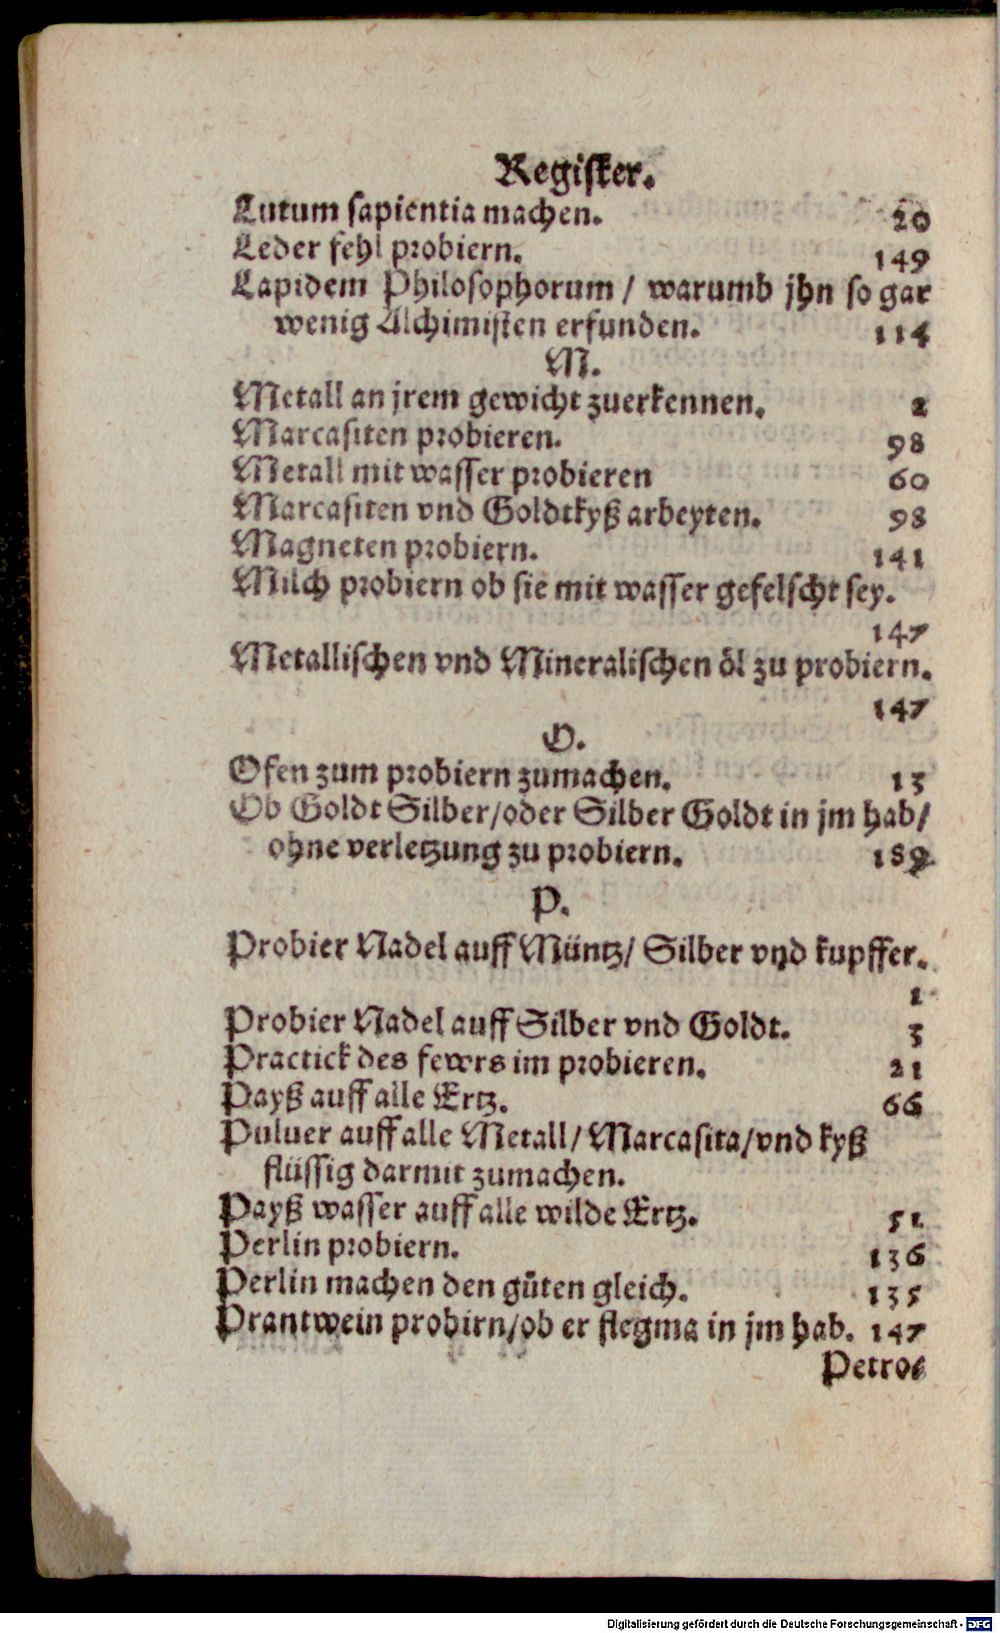 Register.
Lutum sapientia machen. 20
Leder fehl probiern. 149
Lapidem Philosophorum / warumb jhn so gar
wenig Alchimisten erfunden. 114
M.
Metall an jrem gewicht zuerkennen. 2
Marcasiten probieren. 98
Metall mit wasser probieren 60
Marcasiten vnd Goldtkyß arbeyten. 98
Magneten probiern. 141
Milch probiern ob sie mit wasser gefelscht sey.
147
Metallischen vnd Mineralischen öl zu probiern.
147
O.
Ofen zum probiern zumachen. 13
Ob Goldt Silber/oder Silber Goldt in jm hab/
ohne verletzung zu probiern. 189
P.
Probier Nadel auff Müntz/ Silber vnd kupffer.
1
Probier Nadel auff Silber vnd Goldt. 3
Practick des fewrs im probieren. 21
Payß auff alle Ertz. 66
Puluer auff alle Metall/ Marcasita/vnd kyß
flüssig darmit zumachen.
Payß wasser auff alle wilde Ertz. 51
Perlin probiern. 136
Perlin machen den gůten gleich. 135
Prantwein probirn/ob er flegma in jm hab. 147
Petros
Digitalisierung gefördert durch die Deutsche Forschungsgemeinschaft - DFG